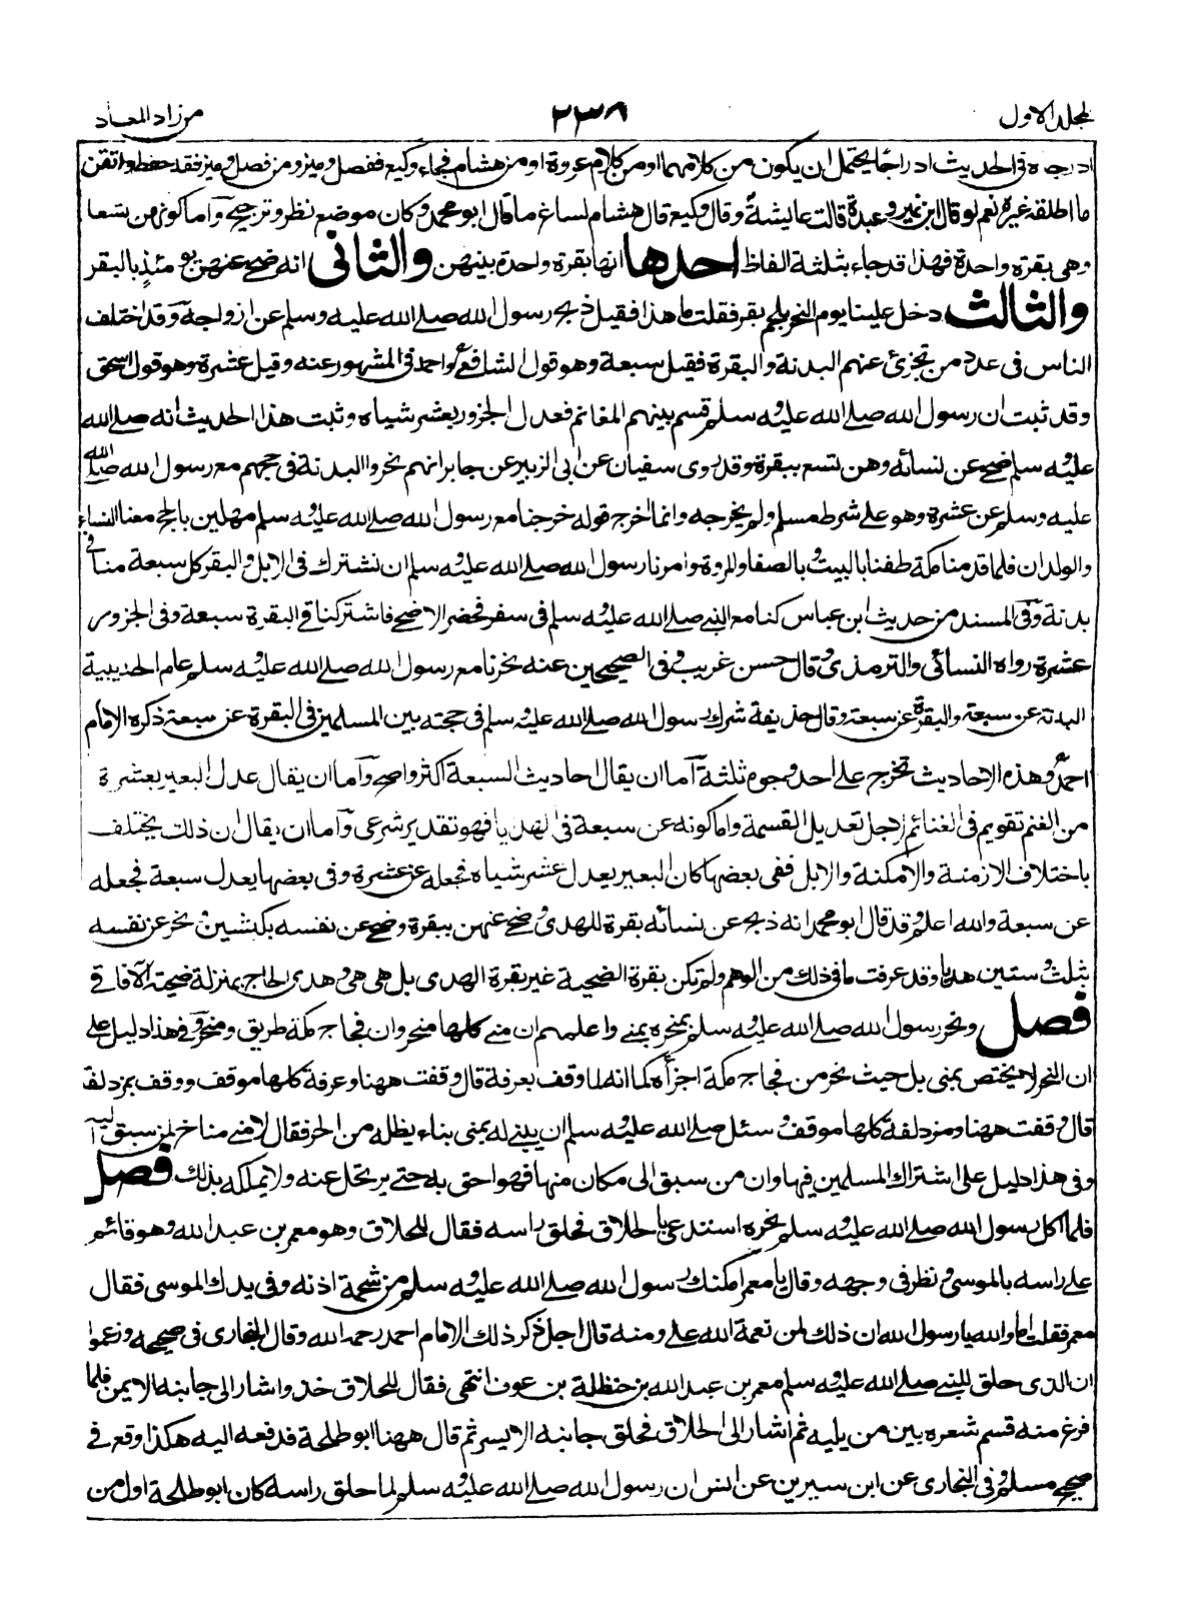 المجلد الاول ٢٣٨ من زاد المعاد
ادرجاه فى الحديث ادراجا يحتمل ان يكون من كلامهما او من كلام عروة او من هشام فجاء وكيع ففصل وميز ومن فصل وميز فقد حفظ واتقن
ما اطلقه غيره نعم لو قال ابن نمير وعبدة قالت عايشة وقال وكيع قال هشام لساغ ما قال ابو محمد وكان موضع نظر وترجيح واما كونهن تسعا
وهى بقرة واحدة فهذا قد جاء بثلثة الفاظ احدها انها بقرة واحدة بينهن والثانى انه ضحى عنهن يومئذٍ بالبقر
والثالث دخل علينا يوم النحر بلحم بقر فقلت ما هذا فقيل ذبح رسول الله صلى الله عليه وسلم عن ازواجه وقد اختلف
الناس فى عدد من تجزئ عنهم البدنة والبقرة فقيل سبعة وهو قول الشافعى واحمد فى المشهور عنه وقيل عشرة وهو قول اسحق
وقد ثبت ان رسول الله صلى الله عليه سلم قسم بينهم المغانم فعدل الجزور بعشر شياه وثبت هذا الحديث انه صلى الله
عليه سلم ضحى عن نسائه وهن تسع ببقرة وقد روى سفيان عن ابى الزبير عن جابر انهم نحروا البدنة فى حجهم مع رسول الله صلى الله
عليه وسلم عن عشرة وهو على شرط مسلم ولم يخرجه وانما اخرج قوله خرجنا مع رسول الله صلى الله عليه سلم مهلين بالحج معنا النساء
والولدان فلما قدمنا مكة طفنا بالبيت وبالصفا والمروة وامرنا رسول الله صلى الله عليه سلم ان نشترك فى الابل والبقر كل سبعة منا فى
بدنة وفى المسند من حديث ابن عباس كنا مع النبى صلى الله عليه سلم فى سفر فحضر الاضحى فاشتركنا فى البقرة سبعة وفى الجزور
عشرة رواه النسائى والترمذى وقال حسن غريب وفى الصحيحين عنه نحرنا مع رسول الله صلى الله عليه سلم عام الحديبية
البدنة عن سبعة والبقرة عن سبعة وقال حذيفة شرك رسول الله صلى الله عليه سلم فى حجته بين المسلمين فى البقرة عن سبعة ذكره الامام
احمد وهذه الاحاديث تخرج على احد وجوه ثلثة اما ان يقال احاديث السبعة اكثر واصح واما ان يقال عدل البعير بعشرة
من الغنم تقويم فى الغنائم لاجل تعديل القسمة واما كونه عن سبعة فى الهدايا فهو تقدير شرعى واما ان يقال ان ذلك يختلف
باختلاف الازمنة والامكنة والابل ففى بعضها كان البعير يعدل عشر شياه فجعله عن عشرة وفى بعضها يعدل سبعة فجعله
عن سبعة والله اعلم وقد قال ابو محمد انه ذبح عن نسائه بقرة للهدى وضحى عنهن ببقرة وضحى عن نفسه بكبشين ونحر عن نفسه
بثلث وستين هديا وقد عرفت ما فى ذلك من الوهم ولم تكن بقرة الضحية غير بقرة الهدى بل هى هى وهدى الحاج بمنزلة ضحية الآفاقى
فصل ونحر رسول الله صلى الله عليه سلم بمنحره بمنى واعلمهم ان منى كلها منحر وان فجاج مكة طريق ومنحر وفى هذا دليل على
ان النحر لا يختص بمنى بل حيث نحر من فجاج مكة اجزأه كما انه لما وقف بعرفة قال وقفت ههنا وعرفة كلها موقف ووقف بمزدلفة
قال وقفت ههنا ومزدلفة كلها موقف وسئل صلى الله عليه سلم ان يبنى له بمنى بناء يظله من الحر فقال لا منى مناخ لمن سبق اليه
وفى هذا دليل على اشتراك المسلمين فيها وان من سبق الى مكان منها فهو احق به حتى يرتحل عنه ولا يملكه بذلك فصل
فلما اكمل رسول الله صلى الله عليه سلم نحره استدعى بالحلاق فحلق راسه فقال للحلاق وهو معمر بن عبد الله وهو قائم
على راسه بالموسى ونظر فى وجهه وقال يا معمر امكنك رسول الله صلى الله عليه سلم من شحمة اذنه وفى يدك الموسى فقال
معمر فقلت اما والله يا رسول الله ان ذلك لمن نعمة الله على ومنه قال اجل ذكر ذلك الامام احمد رحمه الله وقال البخارى فى صحيحه وزعموا
ان الذى حلق للنبى صلى الله عليه سلم معمر بن عبد الله بن حنظلة بن عوف انتهى فقال للحلاق خذ واشار الى جانبه الايمن فلما
فرغ منه قسم شعره بين من يليه ثم اشار الى الحلاق فحلق جانبه الايسر ثم قال ههنا ابو طلحة فدفعه اليه هكذا وقع فى
صحيح مسلم وفى البخارى عن ابن سيرين عن انس ان رسول الله صلى الله عليه سلم لما حلق راسه كان ابو طلحة اول من